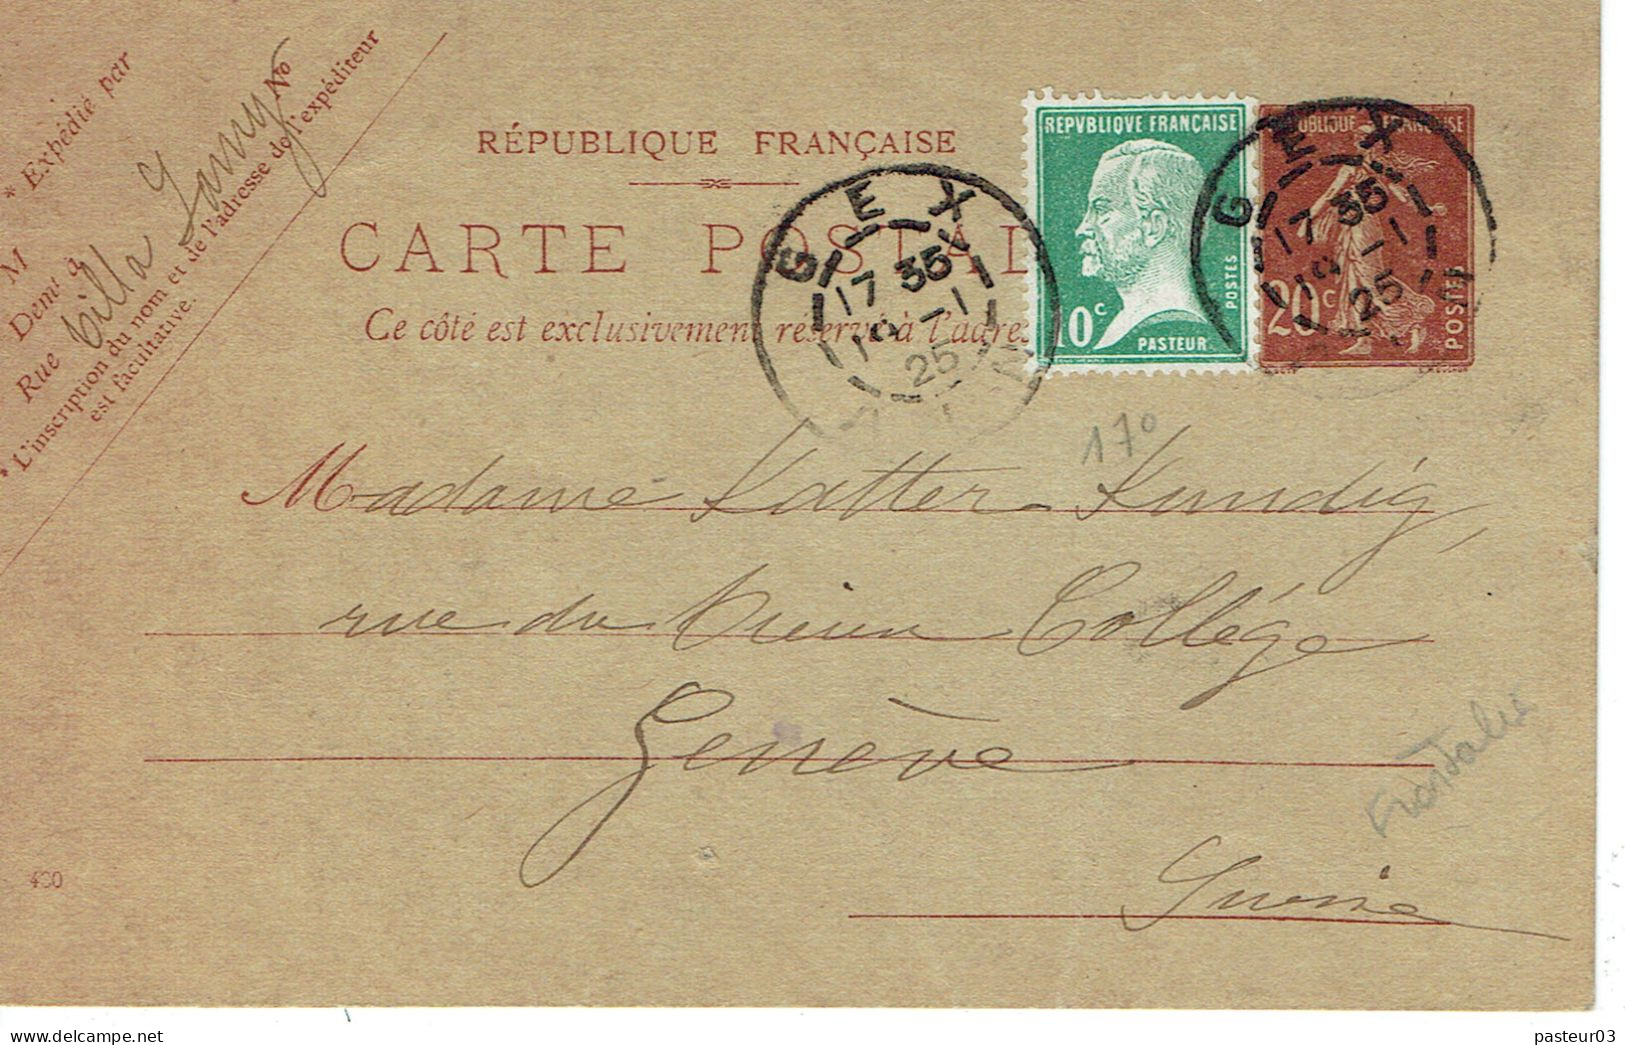 * Expédié par
M
Demt à
Rue Villa No
* L'inscription du nom et de l'adresse de l'expéditeur
est facultative.
RÉPUBLIQUE FRANÇAISE
CARTE POSTAL
Ce côté est exclusivement réservé à l'adres
GEX
17 35
19 -1
25
REPVBLIQVE FRANÇAISE
POSTES
10c
PASTEUR
GEX
17 35
19 -1
25
RÉPUBLIQUE FRANÇAISE
20c
POSTES
170
Madame Katter-Kundig,
rue du Vieux Collége
Genève
Suisse
Frontalier
pasteur03